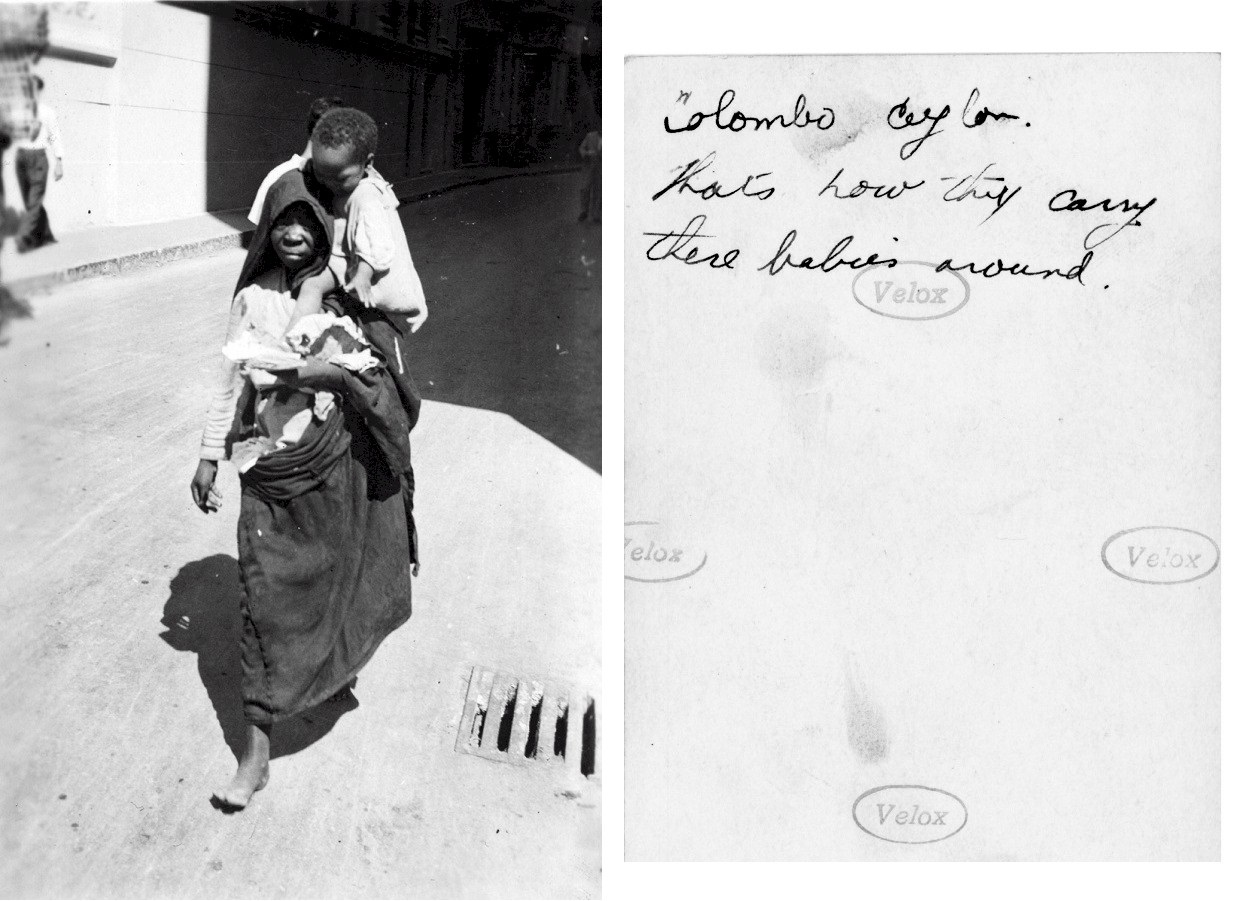 Colombo Ceylon.
thats how they carry
there babies around.
Velox
Velox
Velox
Velox